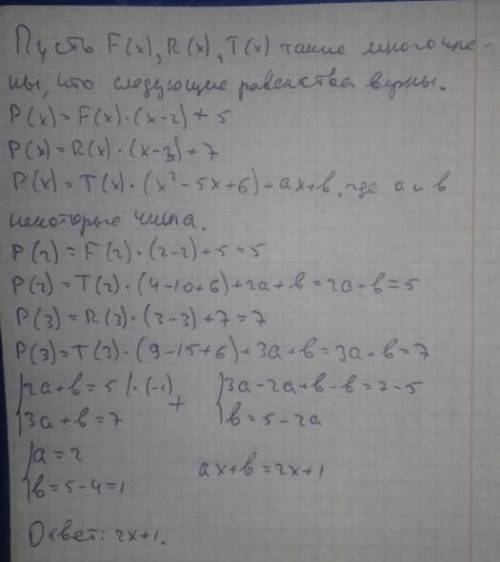 Пусть F(x), R(x), T(x) такие многочле-
ны, что следующие равенства верны.
P(x) = F(x)·(x-2) + 5
P(x) = R(x)·(x-3) + 7
P(x) = T(x)·(x²-5x+6) + ax+b, где a и b
некоторые числа.
P(2) = F(2)·(2-2)+5 = 5
P(2) = T(2)·(4-10+6)+2a+b = 2a+b = 5
P(3) = R(3)·(3-3)+7 = 7
P(3) = T(3)·(9-15+6)+3a+b = 3a+b = 7
{2a+b = 5 |·(-1) + {3a-2a+b-b = 7-5
3a+b = 7 b = 5-2a
{a = 2
b = 5-4 = 1 ax+b = 2x+1
Ответ: 2x+1.